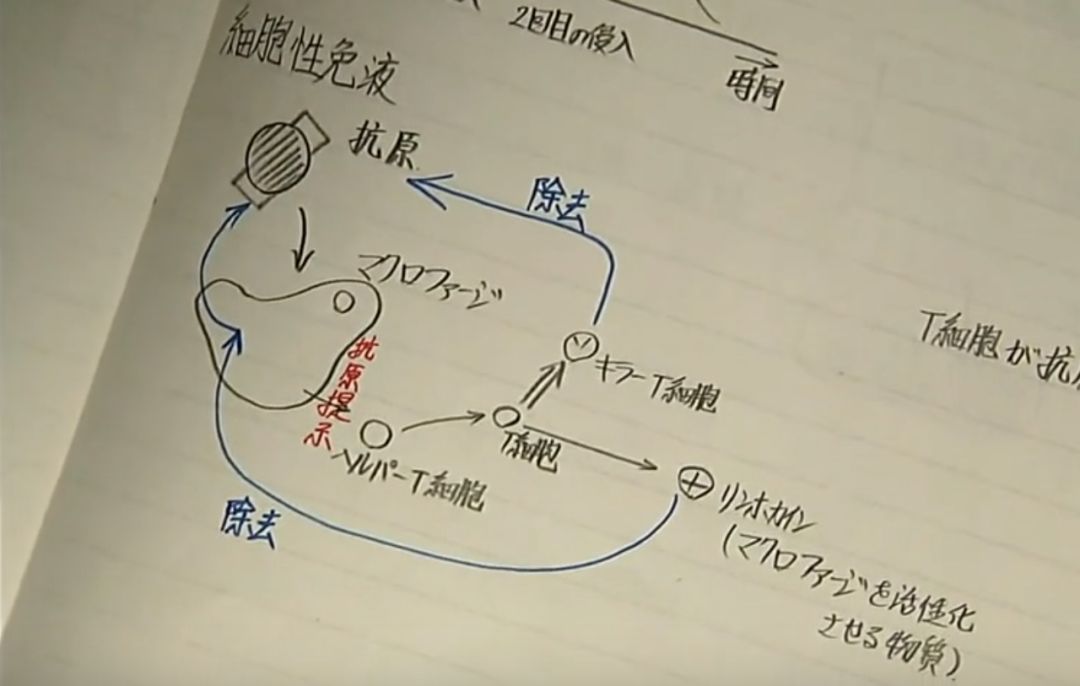 2回目の侵入
時間
細胞性免液
抗原
除去
マクロファージ
抗原提示
キラーT細胞
T細胞
ヘルパーT細胞
リンホカイン
(マクロファージを活性化
させる物質)
除去
T細胞が抗